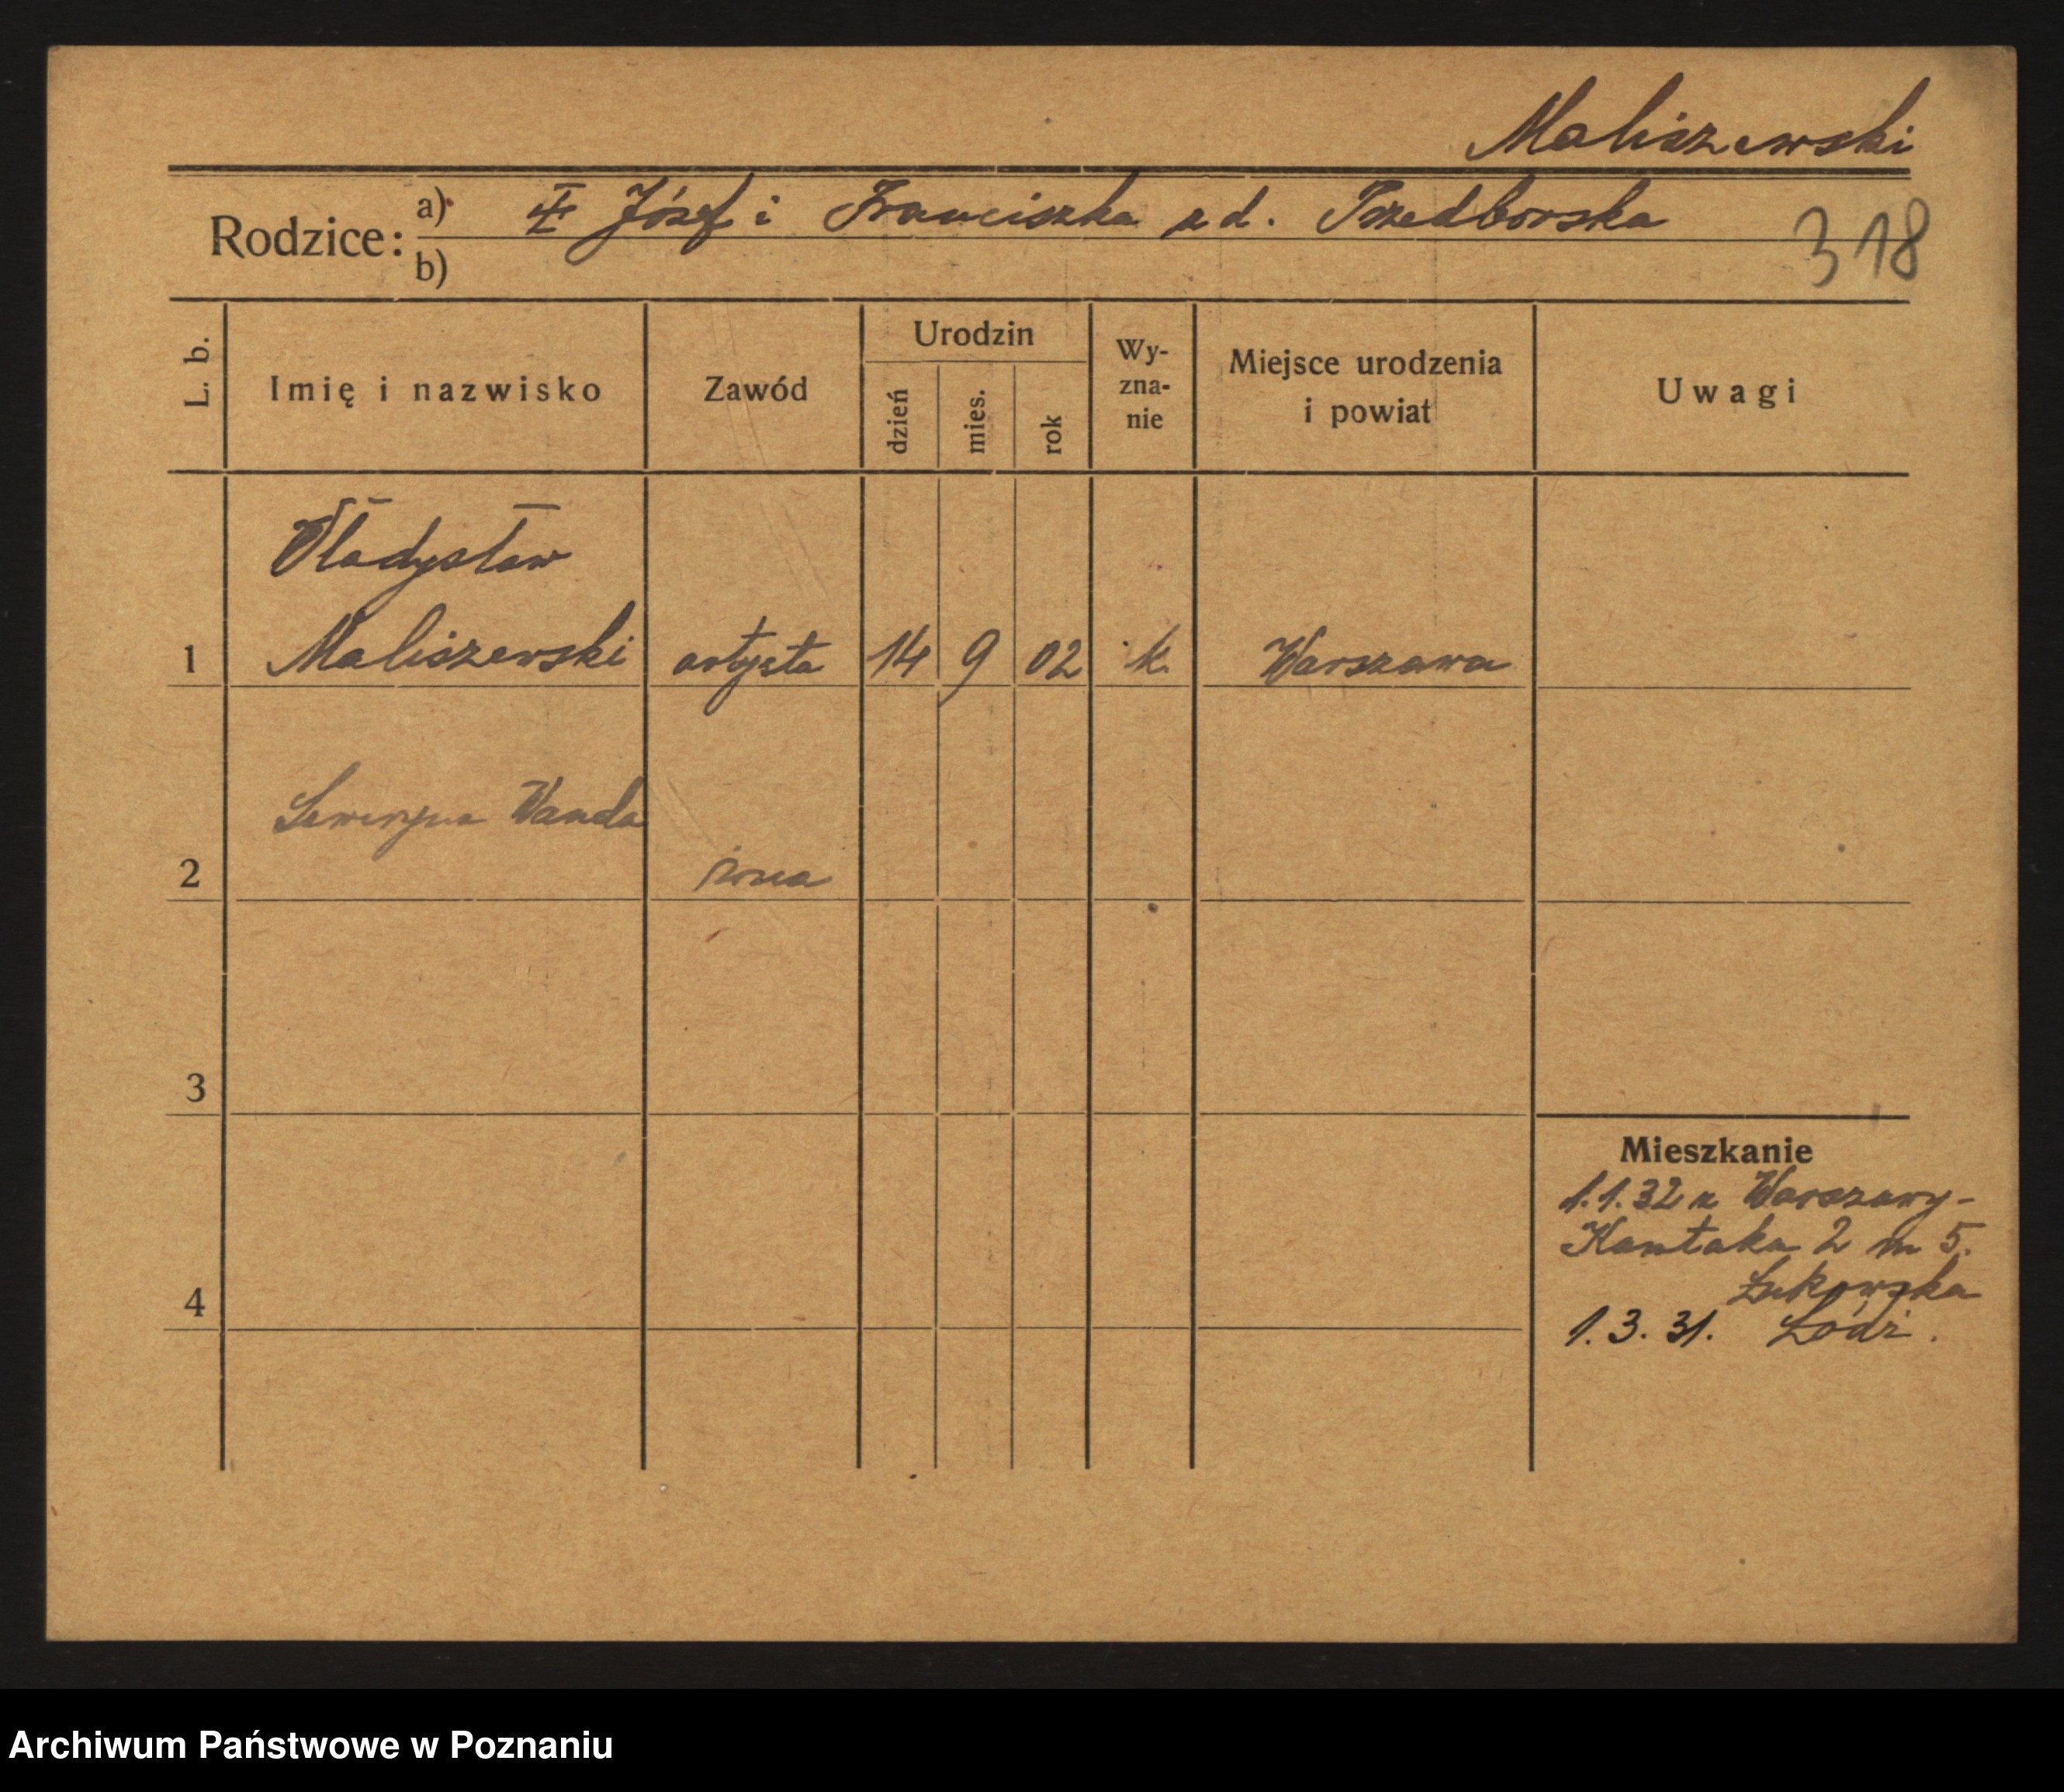 Maliszewski
Rodzice: a) Józef i Franciszka zd. Przedborska
b)
318
L. b. Imię i nazwisko Zawód Urodzin dzień mies. rok Wy-zna-nie Miejsce urodzenia i powiat Uwagi
Władysław
1 Maliszewski artysta 14 9 02 k. Warszawa
Seweryna Wanda
2 żona
3
Mieszkanie
1.1.32 z Warszawy-
Kantaka 2 m 5.
Łukowska
4
1.3.31. Łódź.
Archiwum Państwowe w Poznaniu